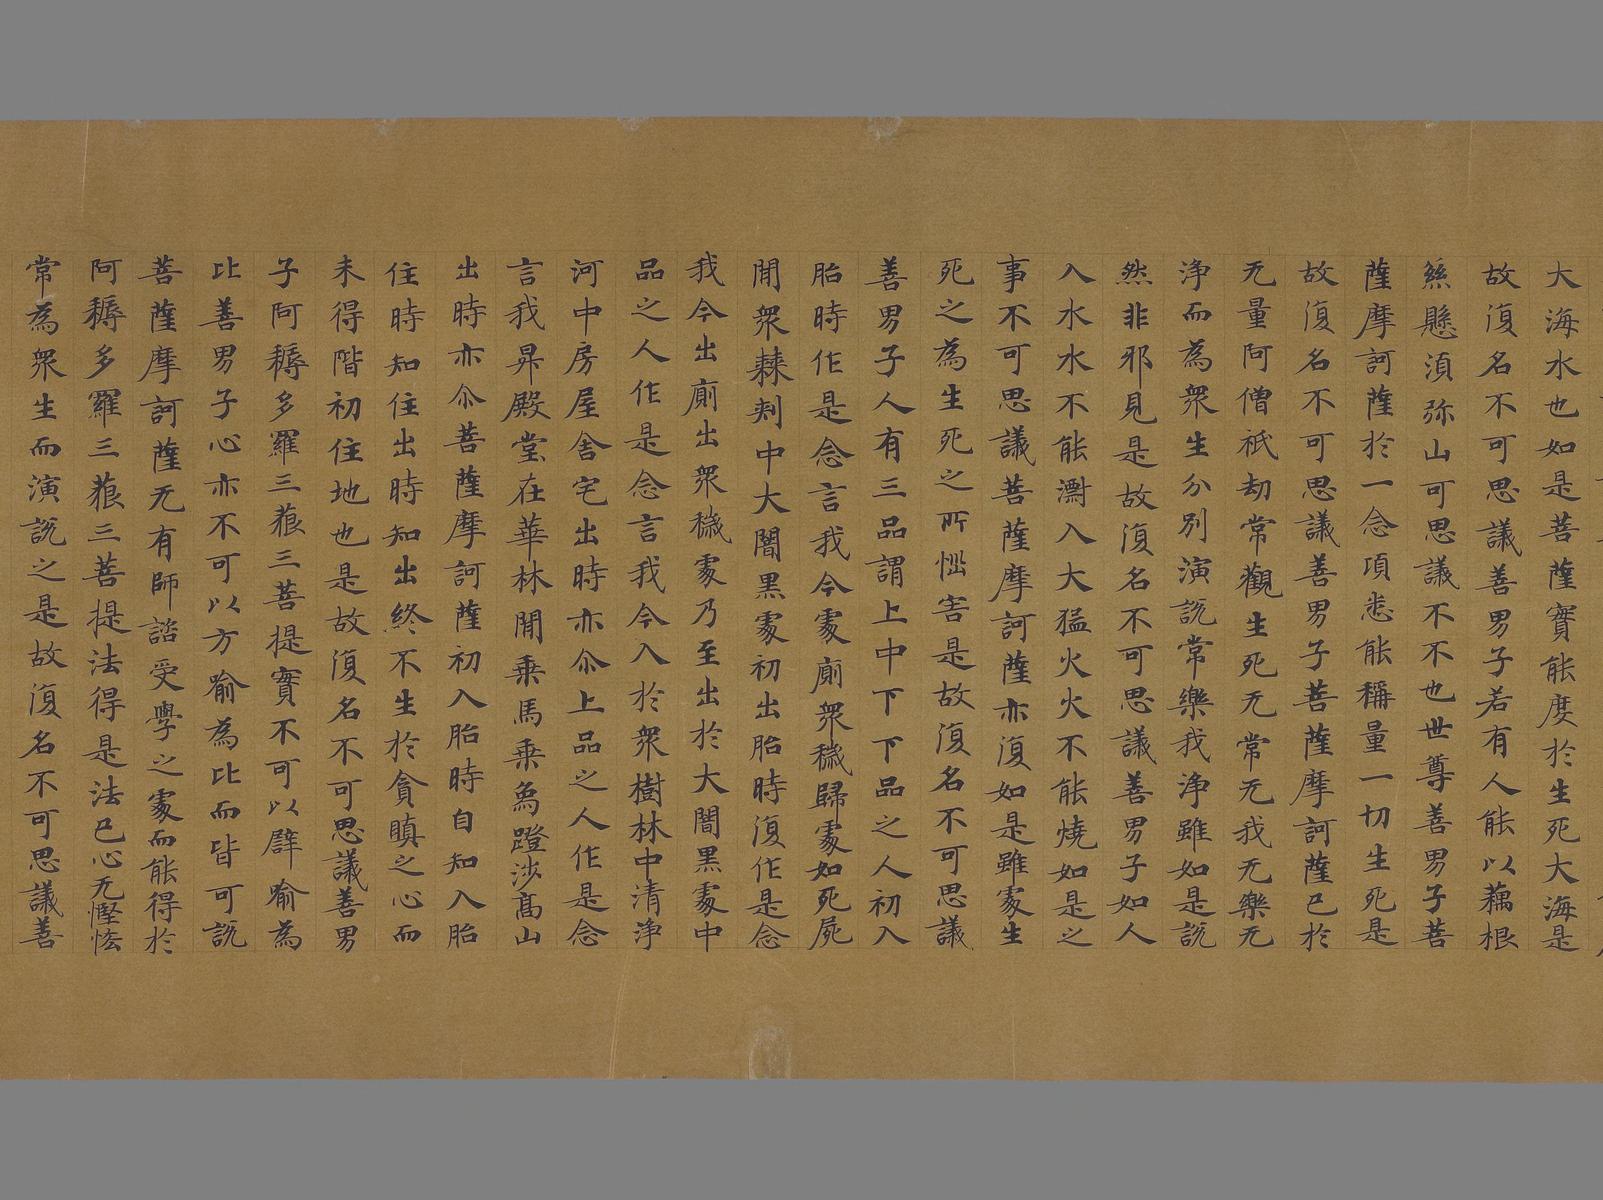 大海水也如是菩薩實能度於生死大海是
故復名不可思議善男子若有人能以藕根
絲懸湏弥山可思議不不也世尊善男子菩
薩摩訶薩於一念頃悉能稱量一切生死是
故復名不可思議善男子菩薩摩訶薩已於
无量阿僧祇劫常觀生死无常无我无樂无
浄而為衆生分別演說常樂我浄雖如是說
然非邪見是故復名不可思議善男子如人
入水水不能溺入大猛火火不能燒如是之
事不可思議菩薩摩訶薩亦復如是雖處生
死之為生死之所惱害是故復名不可思議
善男子人有三品謂上中下下品之人初入
胎時作是念言我今處廁衆穢歸處如死屍
閒衆蕀刾中大闇黒處初出胎時復作是念
我今出廁出衆穢處乃至出於大闇黒處中
品之人作是念言我今入於衆樹林中清浄
河中房屋舎宅出時亦尒上品之人作是念
言我昇殿堂在華林閒乗馬乗烏蹬涉髙山
出時亦尒菩薩摩訶薩初入胎時自知入胎
住時知住出時知出終不生於貪瞋之心而
未得階初住地也是故復名不可思議善男
子阿耨多羅三藐三菩提實不可以譬喻為
比善男子心亦不可以方喻為比而皆可說
菩薩摩訶薩无有師諮受學之處而能得於
阿耨多羅三藐三菩提法得是法已心无慳悋
常為衆生而演說之是故復名不可思議善